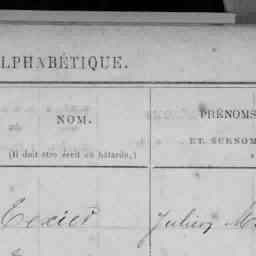 LPHABÉTIQUE.
NOM.
(Il doit être écrit en bâtarde.)
PRÉNOMS
ET SURNOM
Texier
Julien M